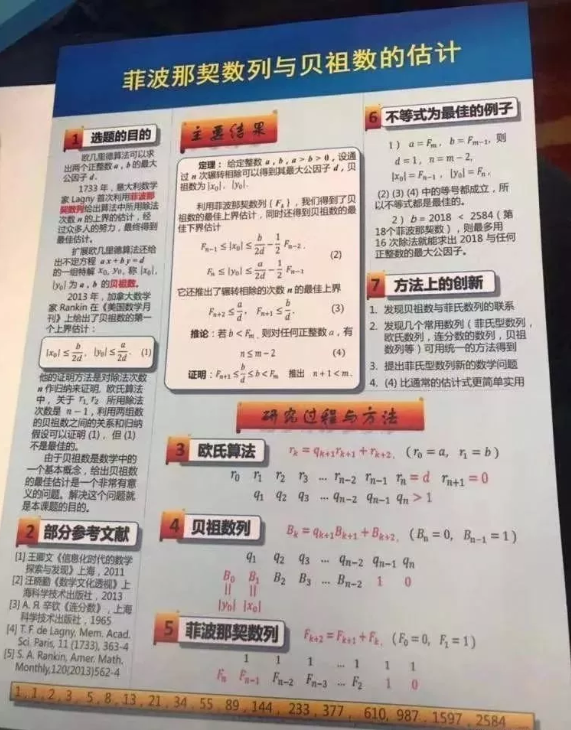 菲波那契数列与贝祖数的估计
1 选题的目的
欧几里德算法可以求
出两个正整数 a, b 的最大
公因子 d.
1733 年,意大利数学
家 Lagny 首次利用菲波那
契数列给出算法中所用除法
次数 n 的上界的估计,经
过众多人的努力,最终得到
最佳估计。
扩展欧几里德算法还给
出不定方程 ax+by=d
的一组特解 x₀, y₀, 称 |x₀|,
|y₀| 为 a, b 的贝祖数。
2013 年,加拿大数学
家 Rankin 在《美国数学月
刊》上给出了贝祖数的第一
个上界估计:
|x₀| ≤ b/2d, |y₀| ≤ a/2d. (1)
他的证明方法是对除法次数
n 作归纳来证明. 欧氏算法
中,关于 r₁, r₂ 所用除法
次数是 n−1,利用两组数
的贝祖数之间的关系和归纳
假设可以证明 (1), 但 (1)
不是最佳的。
由于贝祖数是数学中的
一个基本概念,给出贝祖数
的最佳估计是一个非常有意
义的问题。解决这个问题就
是本课题的目的。
2 部分参考文献
[1] 王卿文《信息化时代的数学
探索与发现》上海,2011
[2] 汪晓勤《数学文化透视》上
海科学技术出版社,2013
[3] A. Я. 辛钦《连分数》,上海
科学技术出版社,1965
[4] T. F. de Lagny, Mem. Acad.
Sci. Paris, 11 (1733), 363-4
[5] S. A. Rankin, Amer. Math.
Monthly,120(2013)562-4
主要结果
定理:给定整数 a, b, a > b > 0, 设通
过 n 次辗转相除可以得到其最大公因子 d, 贝
祖数为 |x₀|, |y₀|.
利用菲波那契数列 {Fₖ}, 我们得到了贝
祖数的最佳上界估计,同时还得到贝祖数的最
佳下界估计
Fₙ₋₁ ≤ |x₀| ≤ b/2d − 1/2 Fₙ₋₂,
(2)
Fₙ ≤ |y₀| ≤ a/2d − 1/2 Fₙ₋₁
它还推出了辗转相除的次数 n 的最佳上界
Fₙ₊₂ ≤ a/d, Fₙ₊₁ ≤ b/d. (3)
推论:若 b < Fₘ, 则对任何正整数 a, 有
n ≤ m − 2 (4)
证明:Fₙ₊₁ ≤ b/d ≤ b < Fₘ 推出 n + 1 < m.
6 不等式为最佳的例子
1) a = Fₘ, b = Fₘ₋₁, 则
d = 1, n = m − 2,
|x₀| = Fₙ₋₁, |y₀| = Fₙ,
(2) (3) (4) 中的等号都成立,所
以不等式都是最佳的。
2) b = 2018 < 2584 (第
18个菲波那契数),则最多用
16 次除法就能求出 2018 与任何
正整数的最大公因子。
7 方法上的创新
1. 发现贝祖数与菲氏数列的联系
2. 发现几个常用数列(菲氏型数列,
欧氏数列,连分数的数列,贝祖
数列等)可用统一的方法得到
3. 提出菲氏型数列新的数学问题
4. (4) 比通常的估计式更简单实用
研究过程与方法
3 欧氏算法 rₖ = qₖ₊₁rₖ₊₁ + rₖ₊₂, (r₀ = a, r₁ = b)
r₀ r₁ r₂ r₃ ... rₙ₋₂ rₙ₋₁ rₙ = d rₙ₊₁ = 0
q₁ q₂ q₃ ... qₙ₋₂ qₙ₋₁ qₙ > 1
4 贝祖数列 Bₖ = qₖ₊₁Bₖ₊₁ + Bₖ₊₂, (Bₙ = 0, Bₙ₋₁ = 1)
q₁ q₂ q₃ ... qₙ₋₂ qₙ₋₁ qₙ
B₀ B₁ B₂ B₃ ... Bₙ₋₂ 1 0
|| ||
|y₀| |x₀|
5 菲波那契数列 Fₖ₊₂ = Fₖ₊₁ + Fₖ, (F₀ = 0, F₁ = 1)
1 1 1 ... 1 1 1
Fₙ Fₙ₋₁ Fₙ₋₂ Fₙ₋₃ ... F₂ 1 0
1, 1, 2, 3, 5, 8, 13, 21, 34 55 89, 144, 233, 377, 610, 987, 1597, 2584